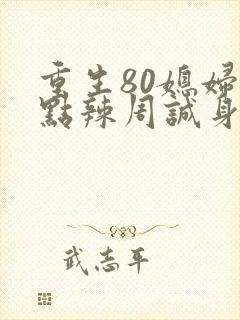 重生80媳婦
點辣周誠身
武志平